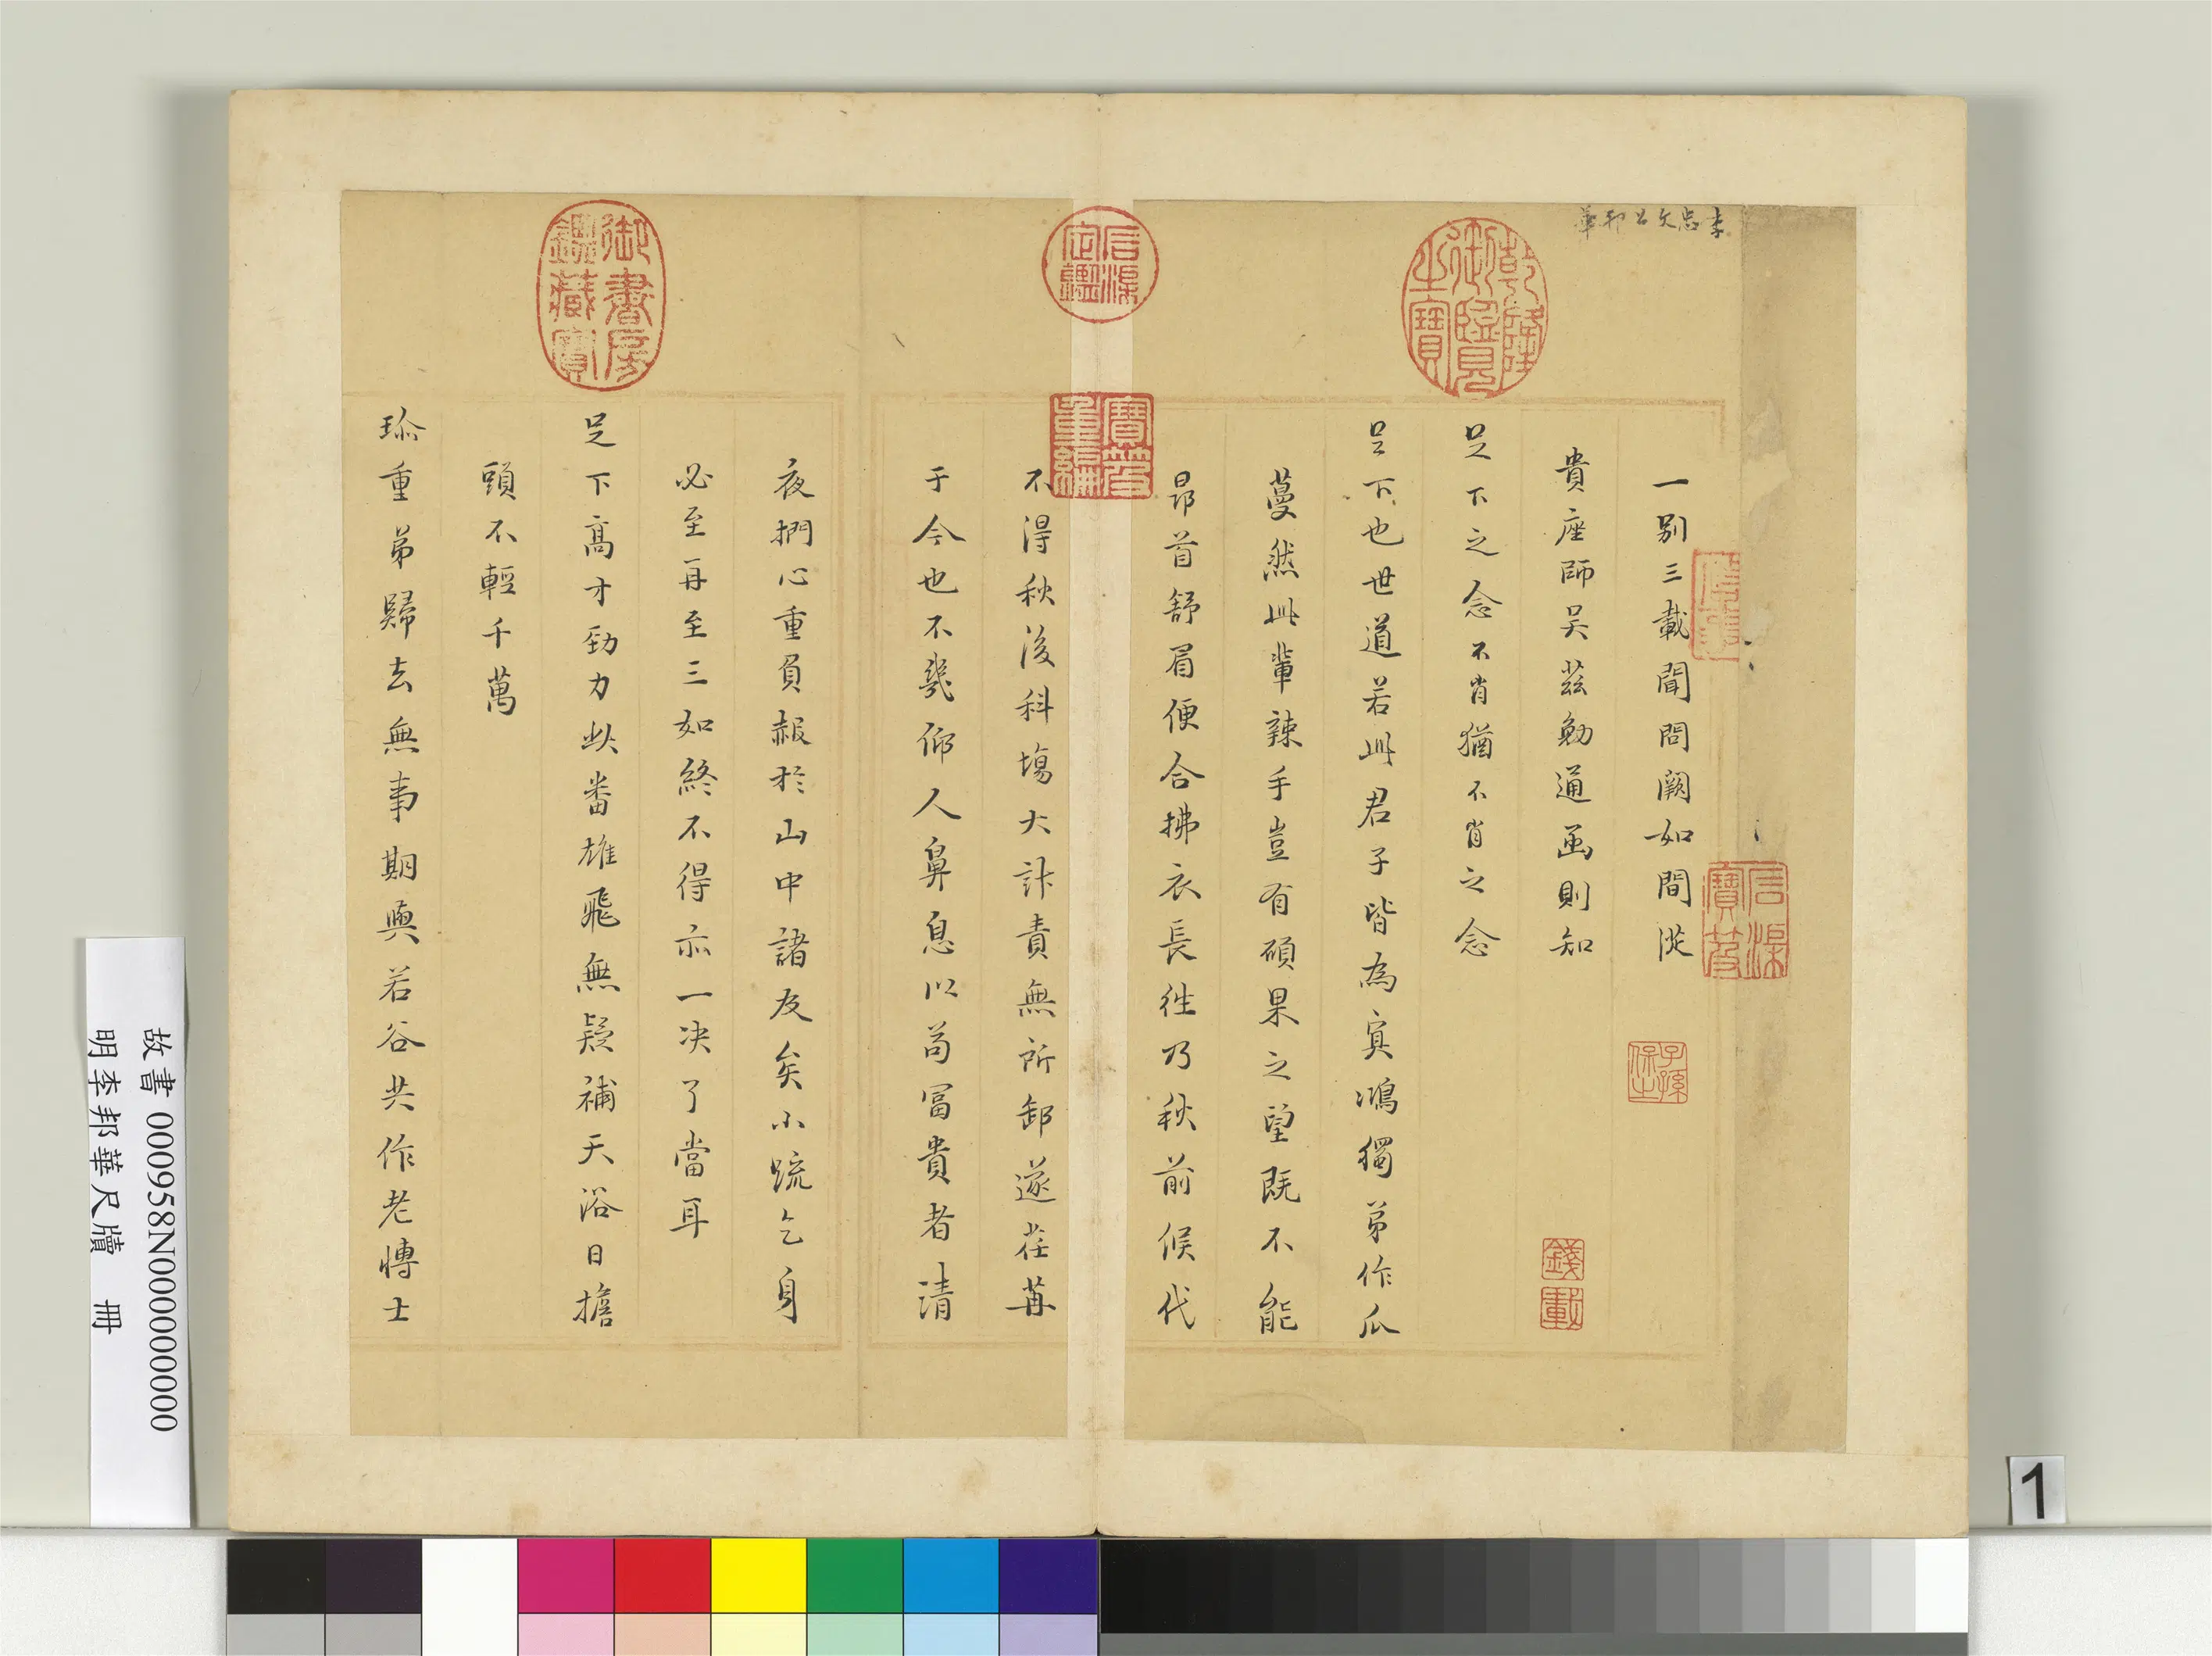 李忠文公邦華
一別三載聞問闕如間從
貴座師吳茲勉通函則知
足下之念不肖猶不肖之念
足下也世道若此君子皆為冥鴻獨弟作瓜
蔓然此輩辣手豈有碩果之望既不能
昂首舒眉便合拂衣長往乃秋前候代
不得秋後科場大計責無所卸遂荏苒
于今也不幾仰人鼻息以苟冨貴者清
夜捫心重負赧於山中諸友矣小疏乞身
必至再至三如終不得亦一决了當耳
足下高才勁力此番雄飛無疑補天浴日擔
頭不輕千萬
珎重弟歸去無事期與若谷共作老博士
乾隆御覽之寶
石渠定鑑
寶笈重編
御書房鑑藏寶
石渠寶笈
子孫保之
故書 000958N000000000
明李邦華尺牘 冊
1